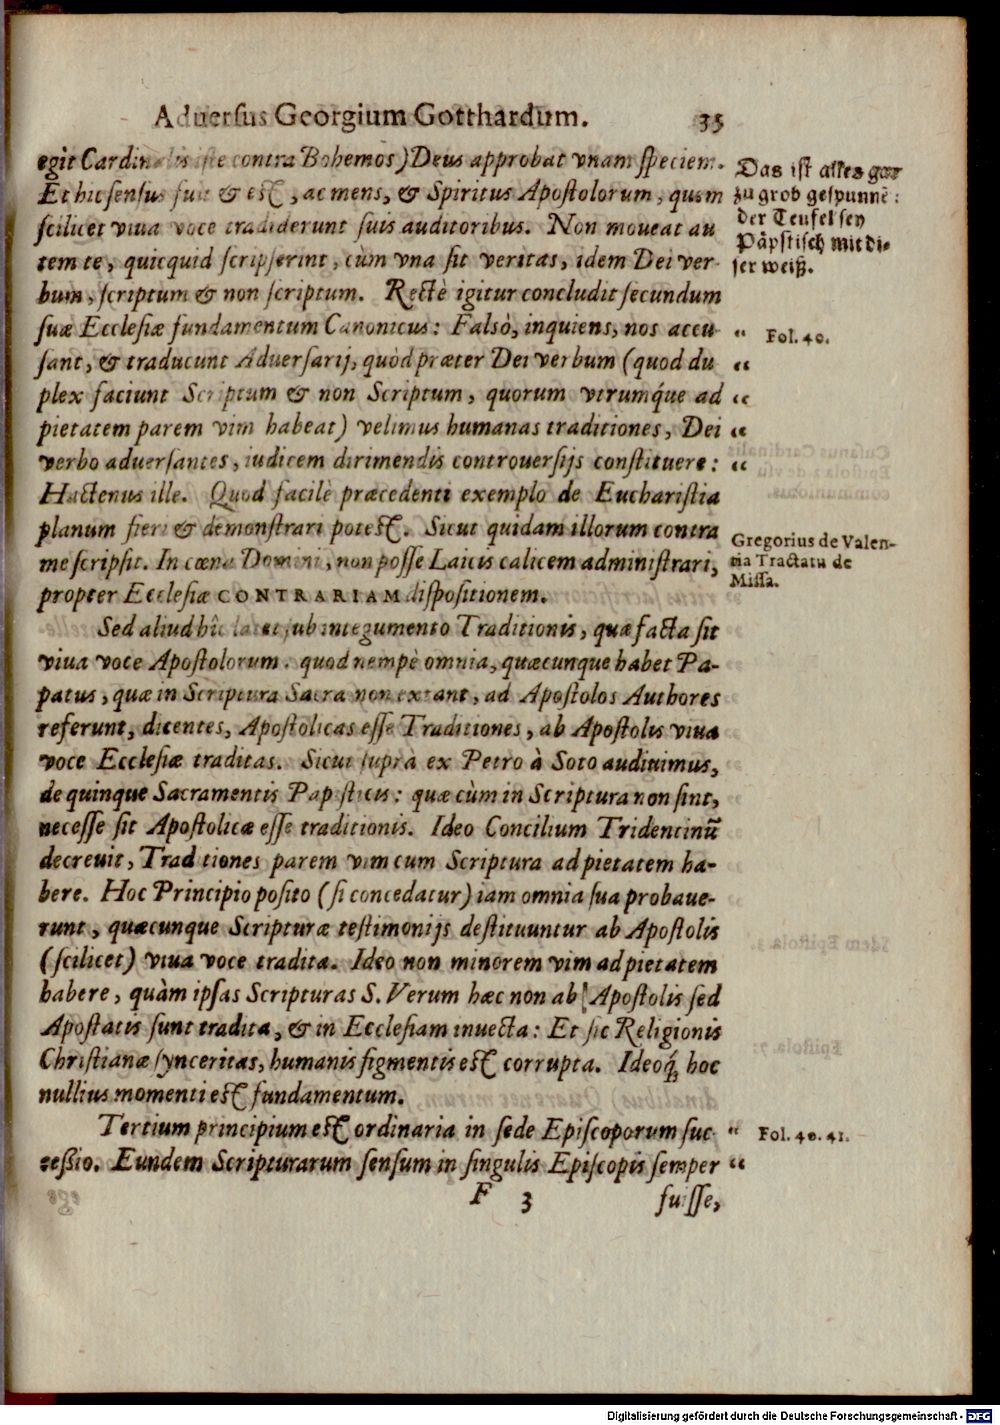 Aduersus Georgium Gotthardum. 35
egit Cardinalis iste contra Bohemos) Deus approbat vnam speciem.
Et hic sensus fuit & est, ac mens, & Spiritus Apostolorum, quem
scilicet viua voce tradiderunt suis auditoribus. Non moueat au
tem te, quicquid scripserint, cùm vna sit veritas, idem Dei ver-
bum, scriptum & non scriptum. Rectè igitur concludit secundum
suæ Ecclesiæ fundamentum Canonicus: Falsò, inquiens, nos accu-
sant, & traducunt Aduersarij, quòd præter Dei verbum (quod du
plex faciunt Scriptum & non Scriptum, quorum vtrumq́ue ad
pietatem parem vim habeat) velimus humanas traditiones, Dei
verbo aduersantes, iudicem dirimendis controuersijs constituere:
Hactenus ille. Quod facilè præcedenti exemplo de Eucharistia
planum fieri & demonstrari potest. Sicut quidam illorum contra
me scripsit. In cœna Domini, non posse Laicis calicem administrari,
propter Ecclesiæ CONTRARIAM dispositionem.
Sed aliud hîc latet sub integumento Traditionis, quæ facta sit
viua voce Apostolorum. quod nempè omnia, quæcunque habet Pa-
patus, quæ in Scriptura Sacra non extant, ad Apostolos Authores
referunt, dicentes, Apostolicas esse Traditiones, ab Apostolis viua
voce Ecclesiæ traditas. Sicut suprà ex Petro à Soto audiuimus,
de quinque Sacramentis Papisticis: quæ cùm in Scriptura non sint,
necesse sit Apostolicæ esse traditionis. Ideo Concilium Tridentinũ
decreuit, Traditiones parem vim cum Scriptura ad pietatem ha-
bere. Hoc Principio posito (si concedatur) iam omnia sua probaue-
runt, quæcunque Scripturæ testimonijs destituuntur ab Apostolis
(scilicet) viua voce tradita. Ideo non minorem vim ad pietatem
habere, quàm ipsas Scripturas S. Verum hæc non ab Apostolis sed
Apostatis sunt tradita, & in Ecclesiam inuecta: Et sic Religionis
Christianæ synceritas, humanis figmentis est corrupta. Ideoq́; hoc
nullius momenti est fundamentum.
Tertium principium est ordinaria in sede Episcoporum suc-
cessio. Eundem Scripturarum sensum in singulis Episcopis semper
F 3 fuisse,
Das ist alles gar
zu grob gespunnē:
der Teufel sey
Päpstisch mit di-
ser weiß.
“ Fol. 40.
“
“
“
“
Gregorius de Valen-
tia Tractatu de
Missa.
“ Fol. 40. 41.
“
Digitalisierung gefördert durch die Deutsche Forschungsgemeinschaft - DFG